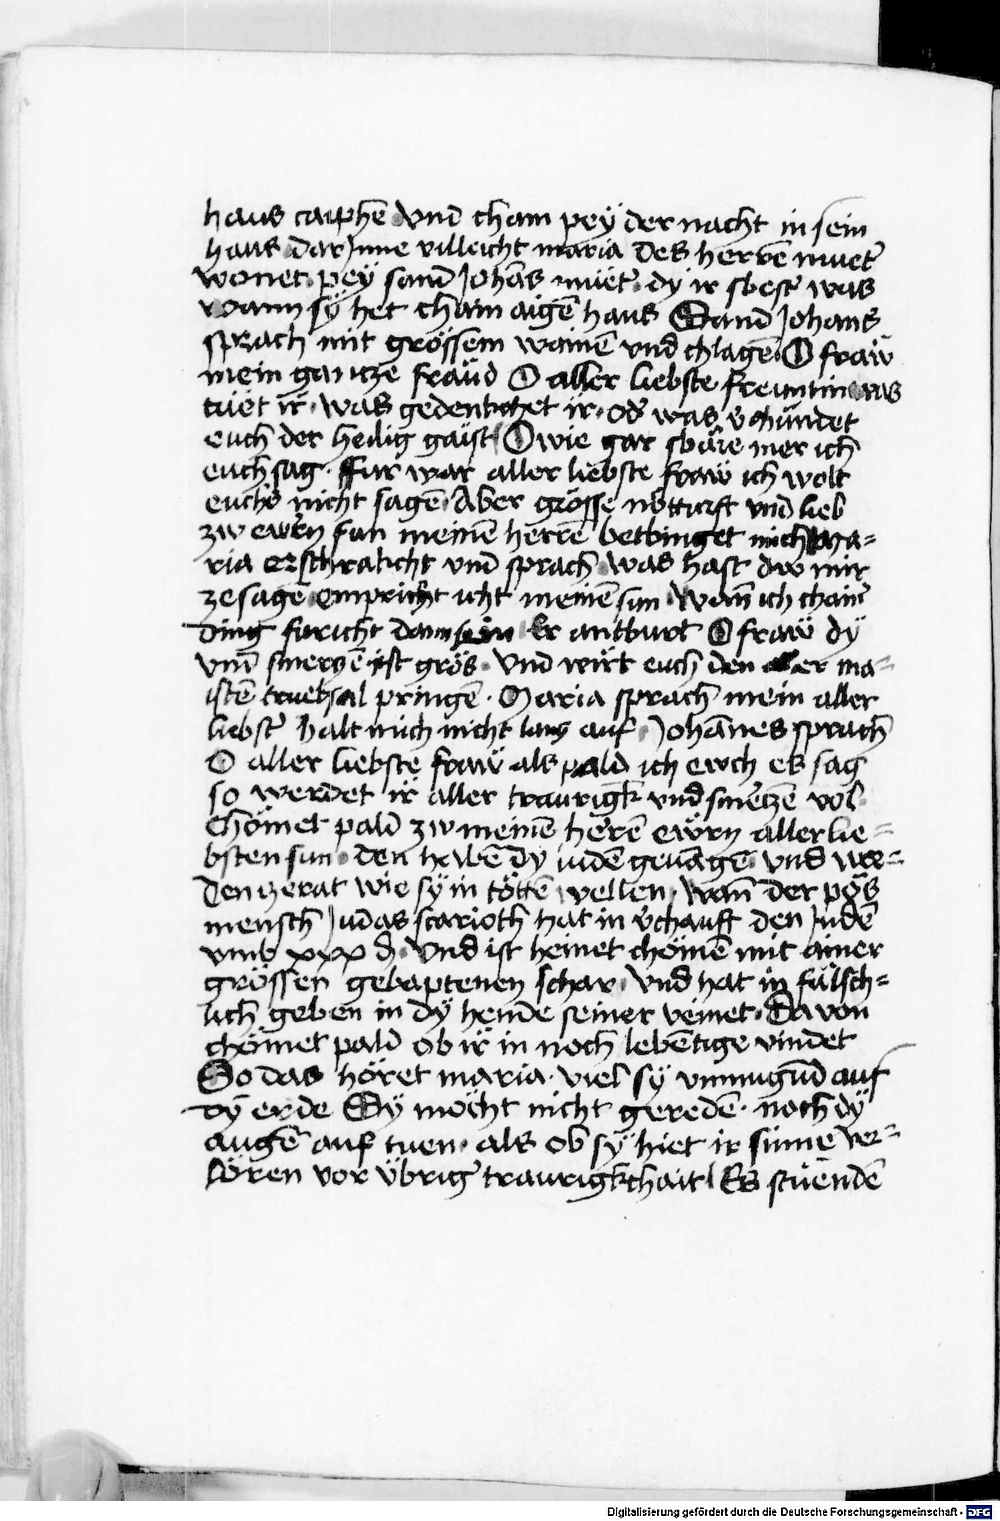 haus cayphē Vnd cham peÿ der nacht in sein
haus dar Jnne villeicht maria des herrē muet̄
wonet peÿ sand Johās mūet̄ dy ir sbest̄ was
wann sÿ het chain aigē haus Sand Johans
sprach mit grössem wainē vnd chlagē O fraẅ
mein gantze fraüd O aller liebste freuntin was
tüet ir was gedenkchet ir od̄ was v̄chündet
euch der heilig gaist O wie gar sbäre mer ich
euch sag Für war aller liebste fraẅ ich wolt
euchs nicht sagē Aber grosse notturft vnd lieb
zw ewrn sun meinē herrē betbinget mich Ma=
ria erschrakcht vnd sprach was hast dw mir
ze sagē empricht icht meinē sun wan̄ ich chain̄
ding füricht dann sein Er antburt O fraẅ dÿ
vnd̄ smerczē ist grös Vnd wirt euch den aller ma=
istē truebsal pringē Maria sprach mein aller
liebst̄ halt mich nicht lang auf Johānes sprach
O aller liebste fraẅ als pald ich ewch es sag
so werdet ir aller traurigk̄ vnd smerczē vol
Chömet pald zw meinē herrē ewrn aller lie=
bsten sun den habē dy iudē geuāgē vnd wer=
den ze rat wie sÿ in töttē wellen wan̄ der pös
mensch Judas scarioth hat in v̄chauft den Judē
vmb xxx d Vnd ist heinet chömē mit ainer
grössen gebaptenen schar Vnd hat in fälsch=
lich geben in dÿ hende seiner veinet Da von
chömet pald ob ir in noch lebētige vindet
So das höret maria viel sÿ vnmugūd auf
dÿ erde Sÿ möcht nicht geredē noch dÿ
augē auf tuen als ob sÿ hiet ir sinne ver=
loren vor übriḡ traurigkchait Es stüendē
Digitalisierung gefördert durch die Deutsche Forschungsgemeinschaft - DFG